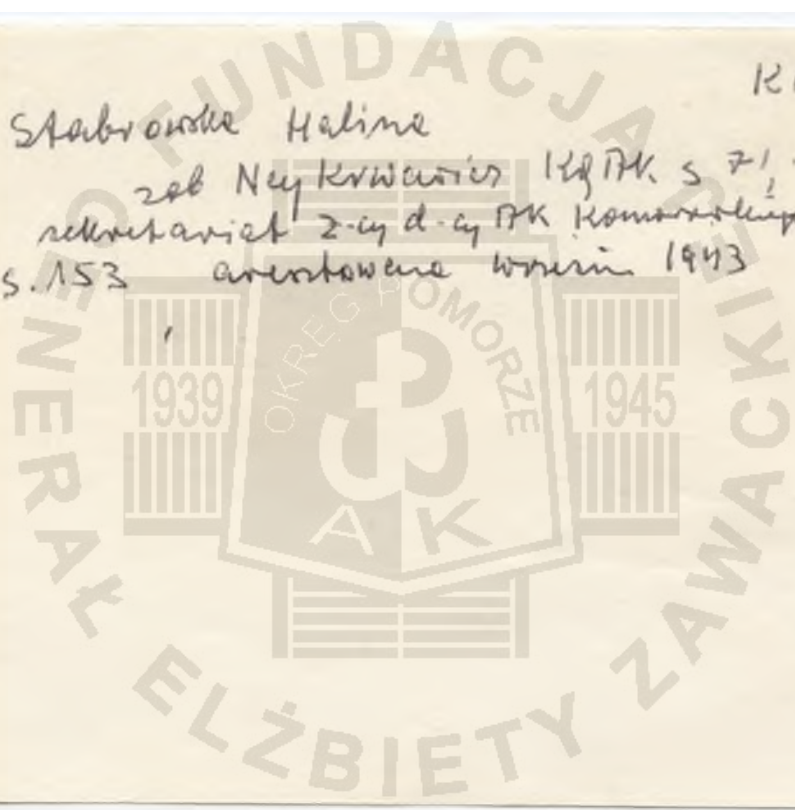 K
Stabrowska Halina
zob Ney Krwawicz KG AK s 71,
sekretariat z-cy d-cy AK Komorowskiego
s. 153 aresztowana wrzesień 1943
FUNDACJA
GENERAŁ ELŻBIETY ZAWACKIEJ
OKRĘG AK POMORZE
1939
1945
A K